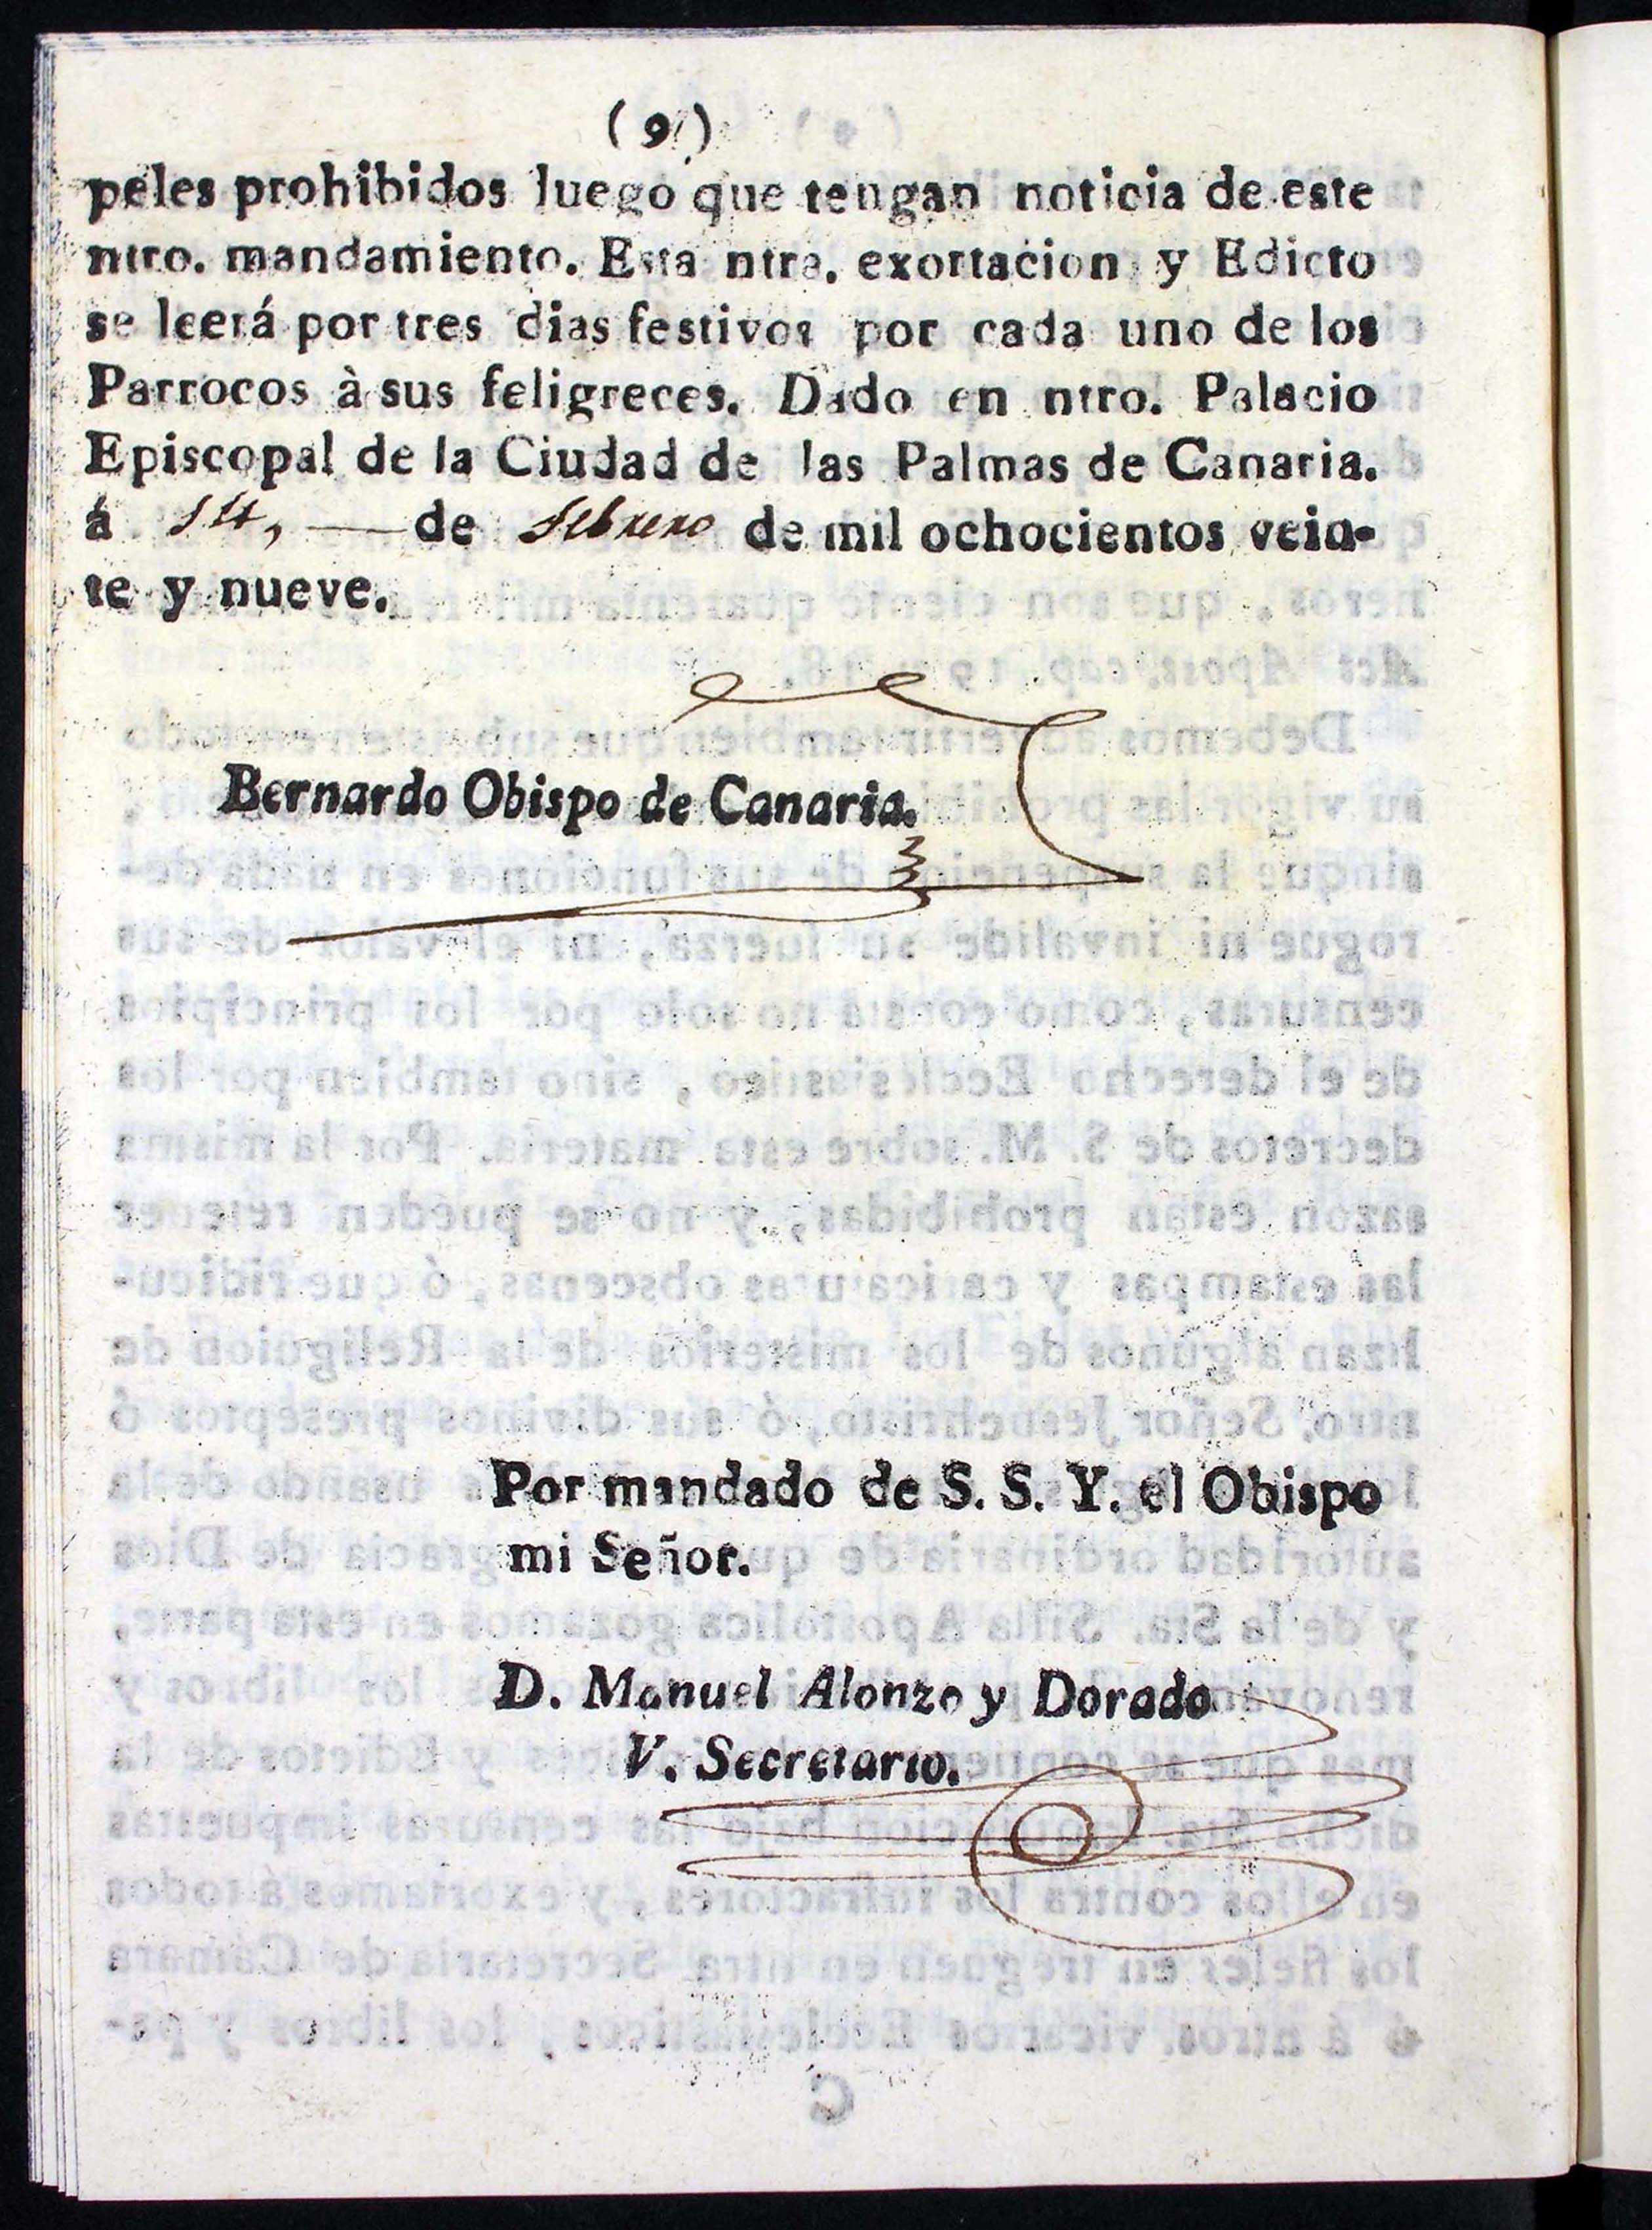 (9)
peles prohibidos luego que tengan noticia de este
ntro. mandamiento. Esta ntra. exortacion y Edicto
se leerá por tres dias festivos por cada uno de los
Parrocos à sus feligreces. Dado en ntro. Palacio
Episcopal de la Ciudad de las Palmas de Canaria.
á 14, — de Febrero de mil ochocientos vein-
te y nueve.
Bernardo Obispo de Canaria.
Por mandado de S. S. Y. el Obispo
mi Señor.
D. Manuel Alonzo y Dorado
V. Secretario.